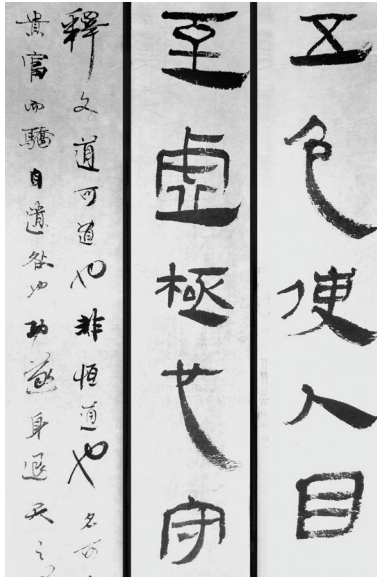 五色使人目
至虛極也守
釋文道可道也非恒道也名可
貴富而驕自遺咎也功遂身退天之